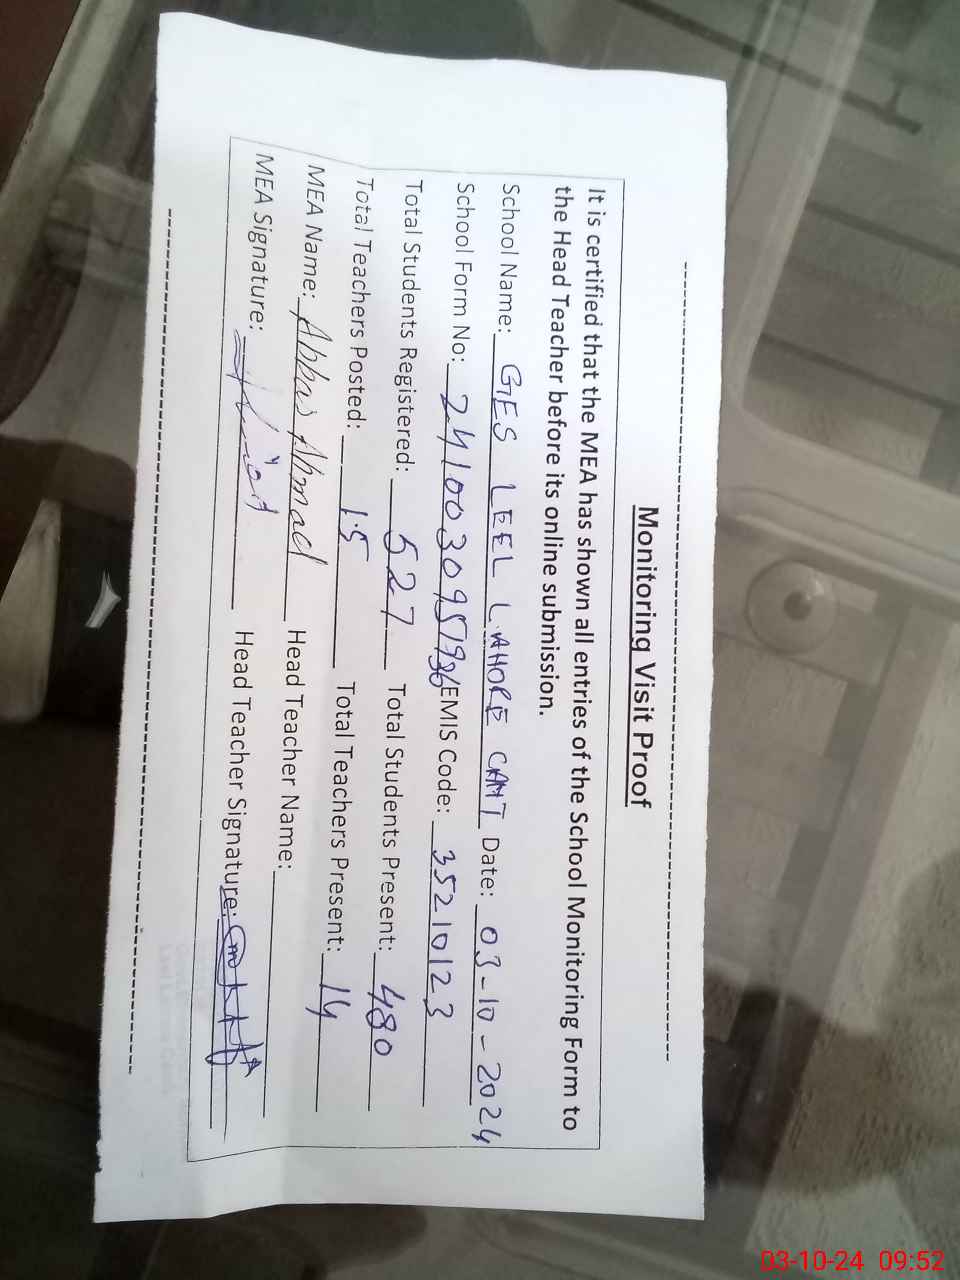 Monitoring Visit Proof
It is certified that the MEA has shown all entries of the School Monitoring Form to
the Head Teacher before its online submission.
School Name: GES LEEL LAHORE CANT Date: 03-10-2024
School Form No: EMIS Code: 35210123
Total Students Registered: 527 Total Students Present: 480
Total Teachers Posted: 15 Total Teachers Present: 14
MEA Name: Abbas Ahmad Head Teacher Name:
MEA Signature: Head Teacher Signature:
03-10-24 09:52